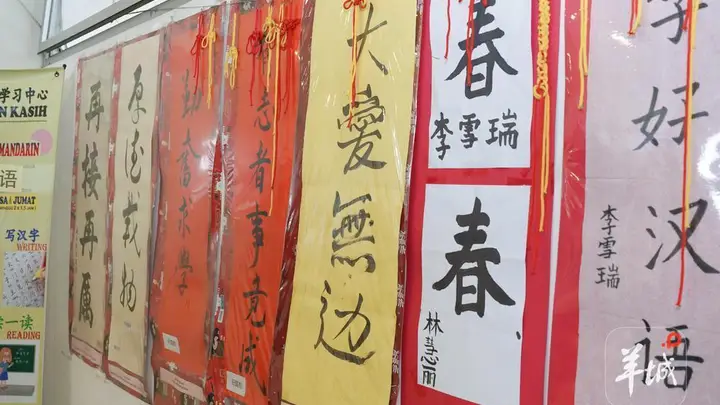 学习中心
N KASIH
MANDARIN
语
SA / JUMAT
写汉字
WRITING
一读
READING
再接再厲
厚德載物
勤奮求学
有志者事竟成
大愛無边
春
李雪瑞
春
林慧丽
学好汉语
李雪瑞
羊城